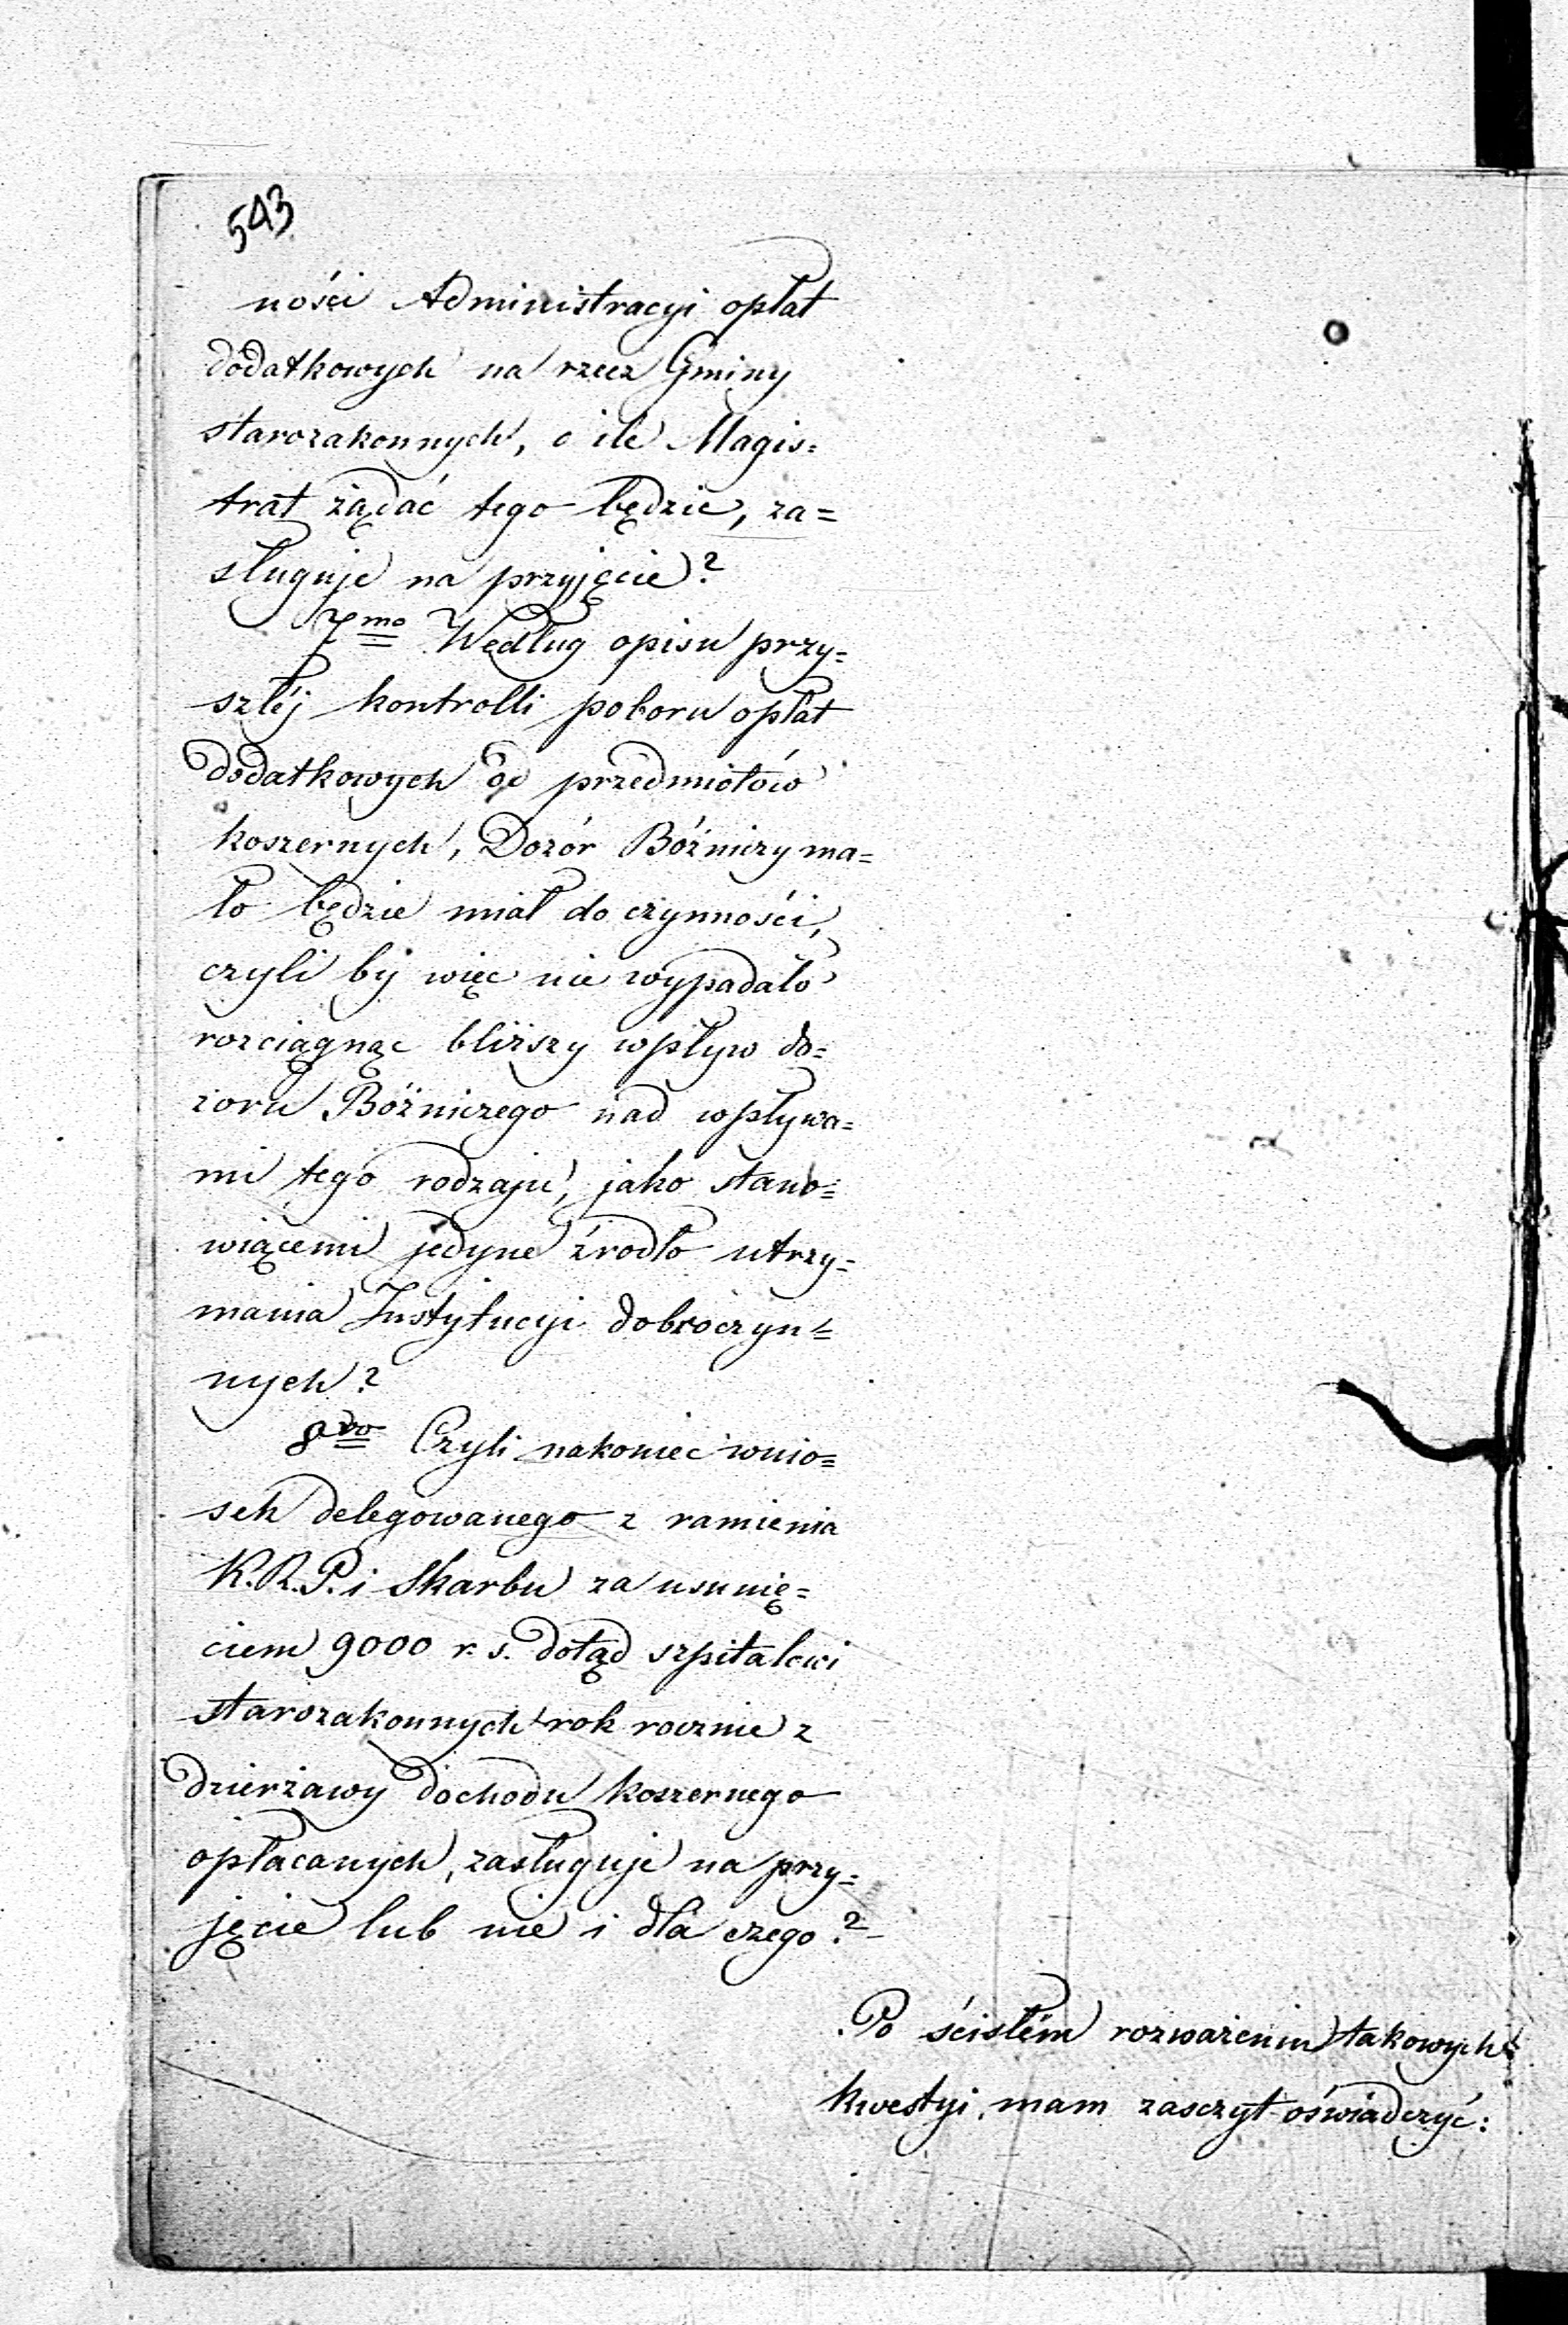 543
ności Administracyi opłat
dodatkowych na rzecz Gminy
starozakonnych, o ile Magis=
trat żądać tego będzie, za=
sługuje na przyjęcie?
7mo Według opisu przy=
szłéj kontrolli poboru opłat
dodatkowych od przedmiotów
koszernych, Dozór Bóżniczy ma=
ło będzie miał do czynności,
czyli by więc nie wypadało
rozciągnąc bliższy wpływ do=
zoru Bóżniczego nad wpływa=
mi tego rodzaju, jako stano=
wiącemi jedyne źrodło utrzy=
mania Instytucyi dobroczyn=
nych?
8vo Czyli nakoniec wnio=
sek delegowanego z ramienia
K.R.P. i Skarbu za usunię=
ciem 9000 r. s. dotąd szpitalowi
starozakonnych rok rocznie z
dzierżawy dochodu koszernego
opłacanych, zasługuje na przy=
jęcie lub nie i dla czego?
Po ścisłém rozważeniu takowych
kwestyi, mam zasczyt oświadczyć: